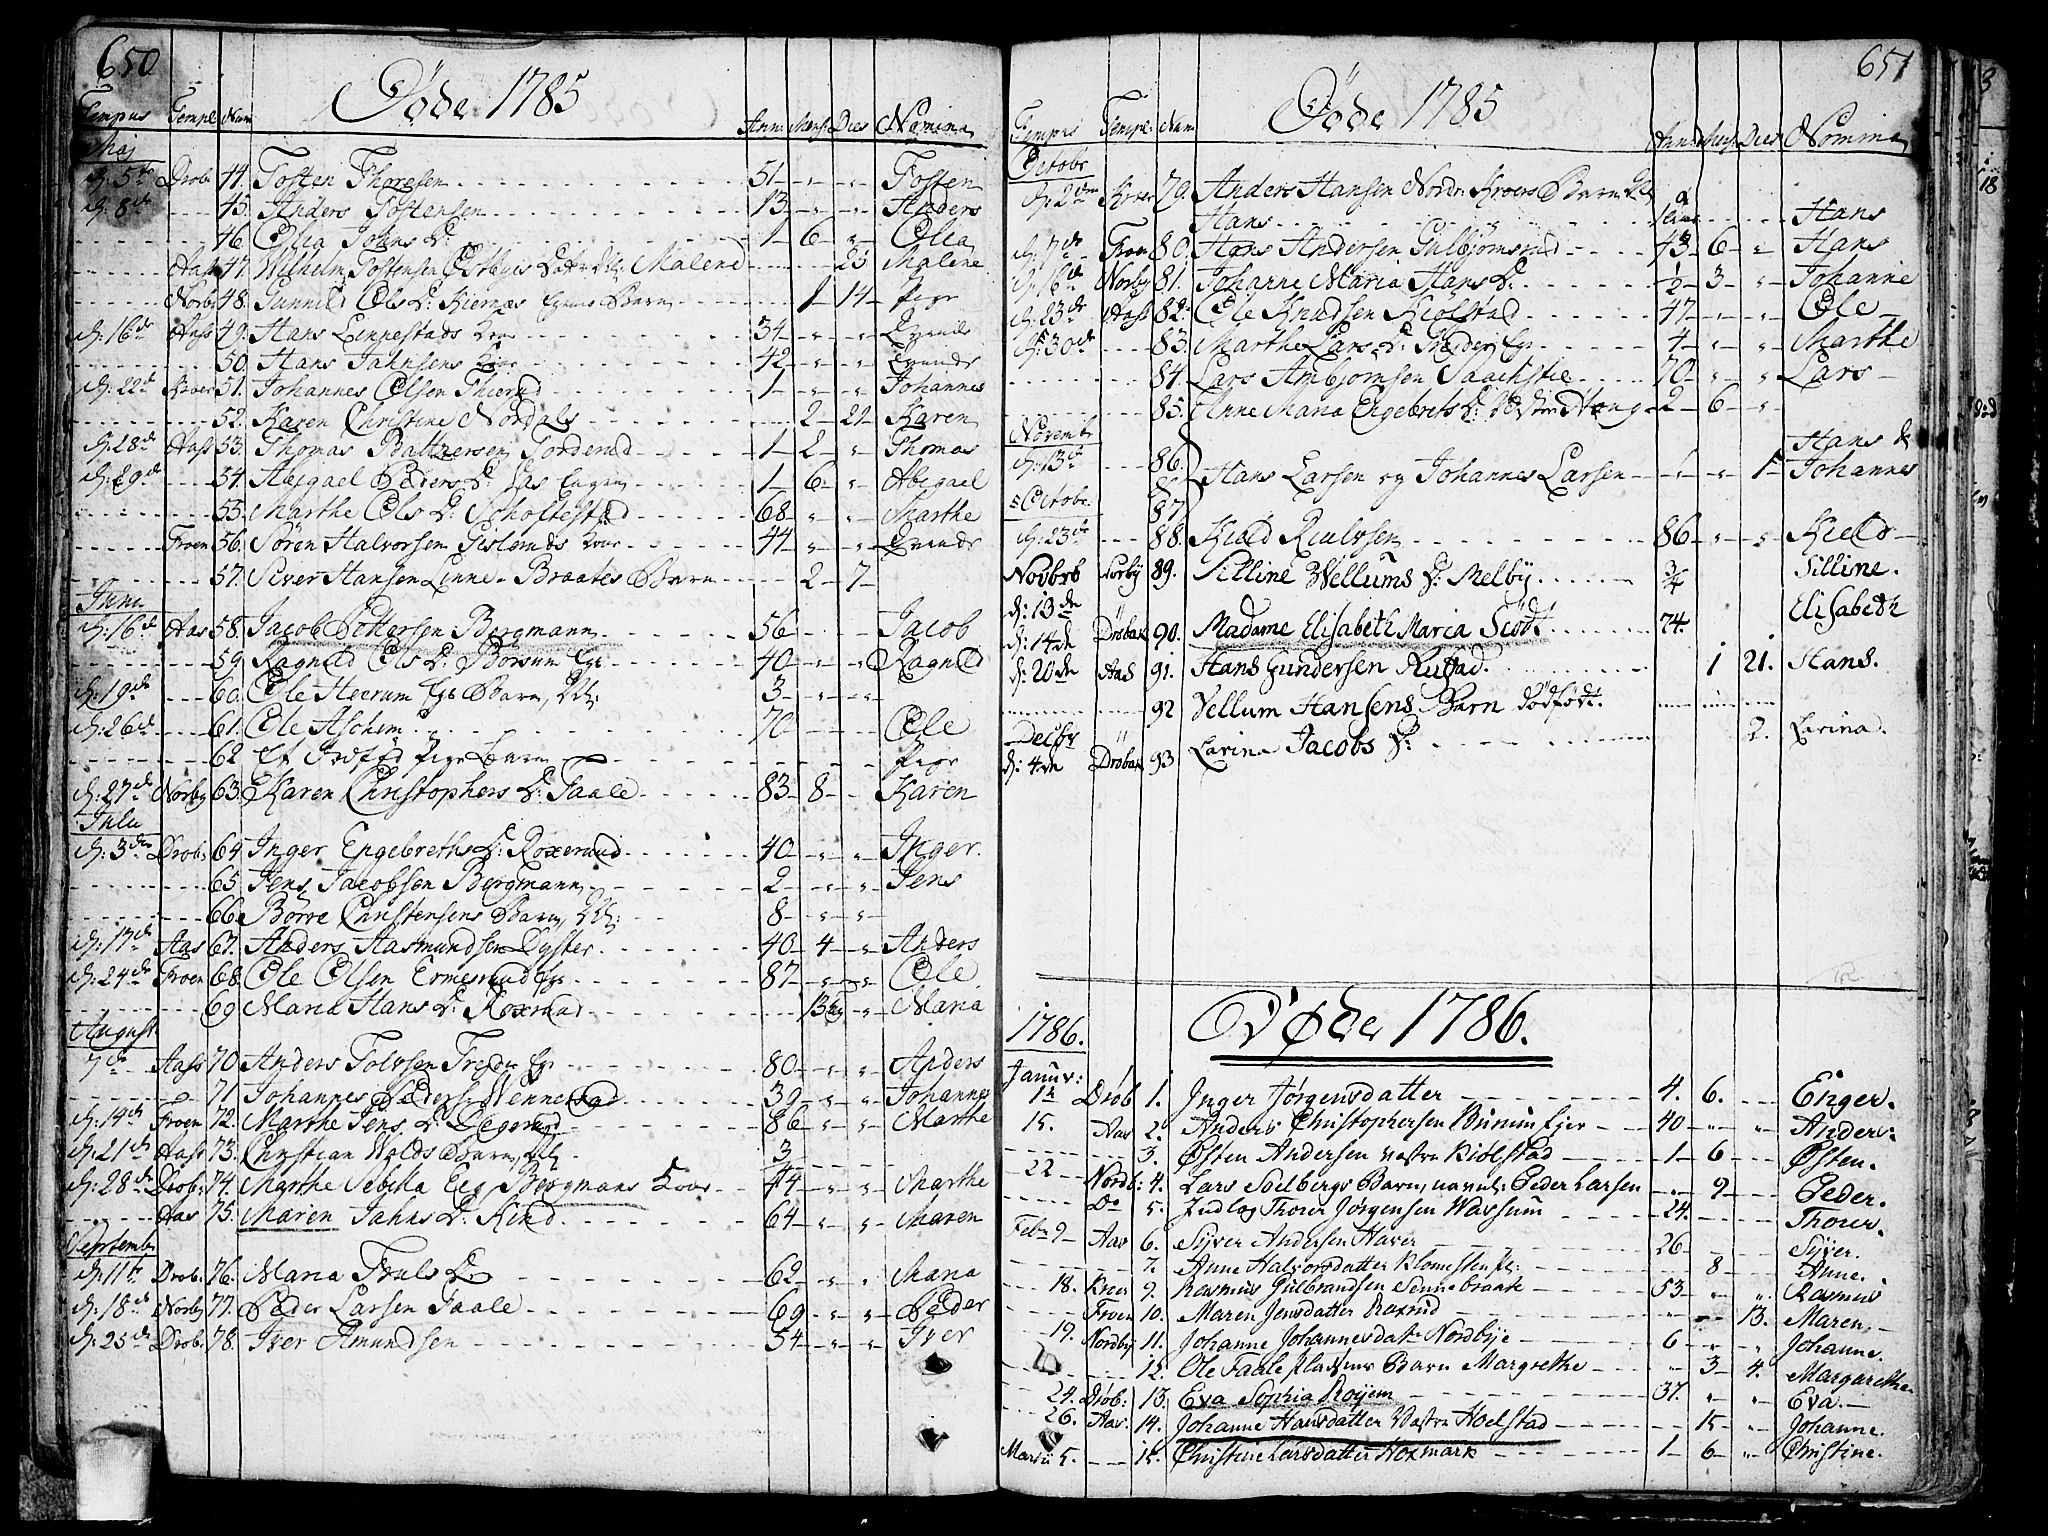 650
Døde 1785
Tempus Templ Num Ann: Mens: Dies Nomina
Maj
d: 5te Drob: 44. Tosten Thoresen 51 " " Tosten
d: 8de 45. Anders Tostensen 13 " " Anders
46. Olea Johns D: 1 6 " Olea
Aass 47. Wilhelm Tostensen Malene 25 Malene
Norby 48. Gunnild Ols D: Barn 1 14 Pige
d: 16de Aass 49. Hans Linnestads Kone 34 " " Qvinde
50. Hans Jahnsens Kone 42 " " Qvinde
d: 22de Kroer 51. Johannes Olsen 1 " " Johannes
52. Karen Christine Nordals 2 22 Karen
d: 28de Aass 53. Thomas Balthersen Torderud 1 2 " Thomas
d: 29de 54. Abigael Peders D: Aas 1 6 " Abigael
55. Marthe Ols D: Scholtestad 68 " " Marthe
Froen 56. Sören Halvorsen Gislends Kone 44 " " Qvinde
57. Siver Hansen Linne-Braates Barn 2 7
Juni
d: 16de Aas 58. Jacob Pettersen Bergmann 56 Jacob
59. Ragnild Ols D: Borsum Eje 40 " " Ragnild
d: 19de 60. Ole Heerum Ejes Barn, 3 " "
d: 26de 61. Ole Aschim 70 Ole
62 Et Dødfød Pige Barn Pige
d: 27de Norby 63. Karen Christophers D: Taale 83 8 Karen
Julii
d: 3die Drob: 64. Inger Engebreths D: Roxerud 40 " " Inger.
65. Jens Jacobsen Bergmann 2 " " Jens
66. Börre Christensens Barn, 8 " "
d: 17de Aas 67. Anders Aasmundsen Dyster 40 4 " Anders
d: 24de Froen 68. Ole Olsen Ermesrud Eje 87 " " Ole
69 Maria Hans D: Roxerud 13 " " Maria
August
7de Aass 70 Anders Tolvsen Treder Eje 80 " " Anders
71 Johannes Peders: Wennestad 39 " " Johannes
d: 14de Froen 72. Marthe Jens D: Degerud 86 " " Marthe
d: 21de Aass 73. Christian Wolds Barn, 3
d: 28de Drob: 74. Marthe Sebilla Eeg Bergmans Kone 44 Marthe
Aas 75. Maren Jahns D: Kind 64 " " Maren
September
d: 11te Drob. 76. Maria Truls D: 62 " " Maria
d: 18de Norby 77. Peder Larsen Taale 69 " " Peder
d: 25de Drob. 78. Iver Amundsen 54 " " Iver
651
Døde 1785
Tempus Templ: Num Ann Mens Dies Nomina
Octobr
d: 2den Kroer 79. Anders Hansen Nordre Kroers Barn
Hans Hans
d: 7de Froen 80. Hans Andersen Gulbjørnsrud 43 6 " Hans
d: 16de Norby 81. Johanne Maria Hans D: 1/2 3 " Johanne
d: 23de Aass 82. Ole Knudsen Kiölstad 47 " " Ole
d: 30de 83. Marthe Lars D: Treder Eje 4 " " Marthe
84. Lars Ambjørnsen Saachstie 70 " " Lars
85. Anne Maria Engebrets D: Vestre Haug 2 6 "
Novemb Hans &
d: 13de 86. Hans Larsen og Johannes Larsen " " 1 Johannes
Octobr. 87
d: 23de 88. Kield Riulvsen 86 " " Kield
Novbrb Norby 89. Silline Vellums D: Melby 3/4 Silline.
d: 13de Elisabeth
d: 14de Dröbak 90. Madame Elisabeth Maria Scödt 74.
d: 20de Aas 91. Hans Gundersen Rustad. 1 21. Hans.
92 Vellum Hansens Barn dödfödt.
Decbr 2. Larina.
d: 4de Dröbak 93 Larina Jacobs D:
1786. Døde 1786.
Januv:
1te Dröb 1. Inger Jørgensdatter 4. 6. Enger.
15. Aas 2. Anders Christophersen Burum Ejer 40 " " Anders:
3. Østen Andersen vestre Kiølstad 1 6 Østen.
22 Nordb: 4. Lars Solbergs Barn, navnl: Peder Larsen " 9 Peder.
Do 5. Thorer Jørgensen Wassum 24. Thorer.
Febr 9 Aas 6. Syver Andersen Haver 26 Syver.
7. Anne Halvorsdatter Klomesten 8 Anne.
18. Kroer 9. Rasmus Gulbrandsen Sennebraate 53 " " Rasmus
Froen 10. Maren Jensdatter Roxrud 13. Maren.
19. Nordby 11. Johanne Johannesdat: Nordbye 6 " " Johanne.
12. Ole Taale Pladsens Barn Margrethe " 3 4. Margarethe.
24. Dröb: 13. Eva Sophia Royem 37. " " Eva.
26. Aas. 14. Johanne Hansdatter Vestre Holstad 15 " Johanne.
Martii 5. 15. Christine Larsdatter Hoxmark 1 6 " Christine.